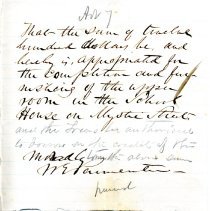 Art 7.
That the sum of twelve
hundred dollars be, and
hereby is, appropriated for
the completion and fur-
nishing of the upper
room in the School
House on Mystic Street
and the Treasurer authorized
to borrow on the credit of the
the above sum
W E Parmenter